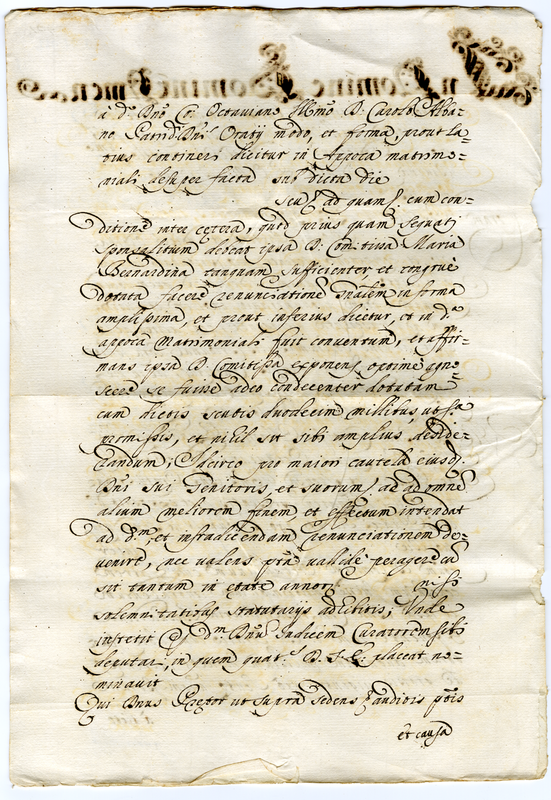 à d.º Dno Co: Octaviano Illmo D. Carolo Alba=
no Patrid: Dni Oratij modo, et forma, prout la=
tius contineri dicitur in Apoca matrimo=
niali desuper facta sub dicta die
seu ad quam cum con=
ditione inter cętera, quod prius quam sequatj
sponsalitium debeat ipsa D. Comitissa Maria
Bernardina tanquam sufficienter et congruè
dotata facere renunciatione in forma
amplissima, et prout inferius dicetur, et in d.ª
apoca Matrimoniali fuit conventum, et affir=
mans ipsa D. Comitissa exponens optimè agno=
scere se fuisse adeo condecenter dotatam
cum dictis scutis duodecim millibus ut sa
promissis, et nihil sit sibi amplius deside=
randum; Idcirco pro maiori cautela eiusd.
Dni sui Genitoris, et suorum, ac ad omnē
alium meliorem finem et effectum intendat
ad et infradicendam renunciationem de=
venire, nec valens vallidè peragere cū
sit tantum in etate annor nisi
solemnitatibus statutarijs adhibitis; Unde
institit Dnū Iudicem Curatorem sibi
deputari, in quem D. placeat no=
minavit
Qui Dnus Pretor ut supra sedens auditis ptis
et causa